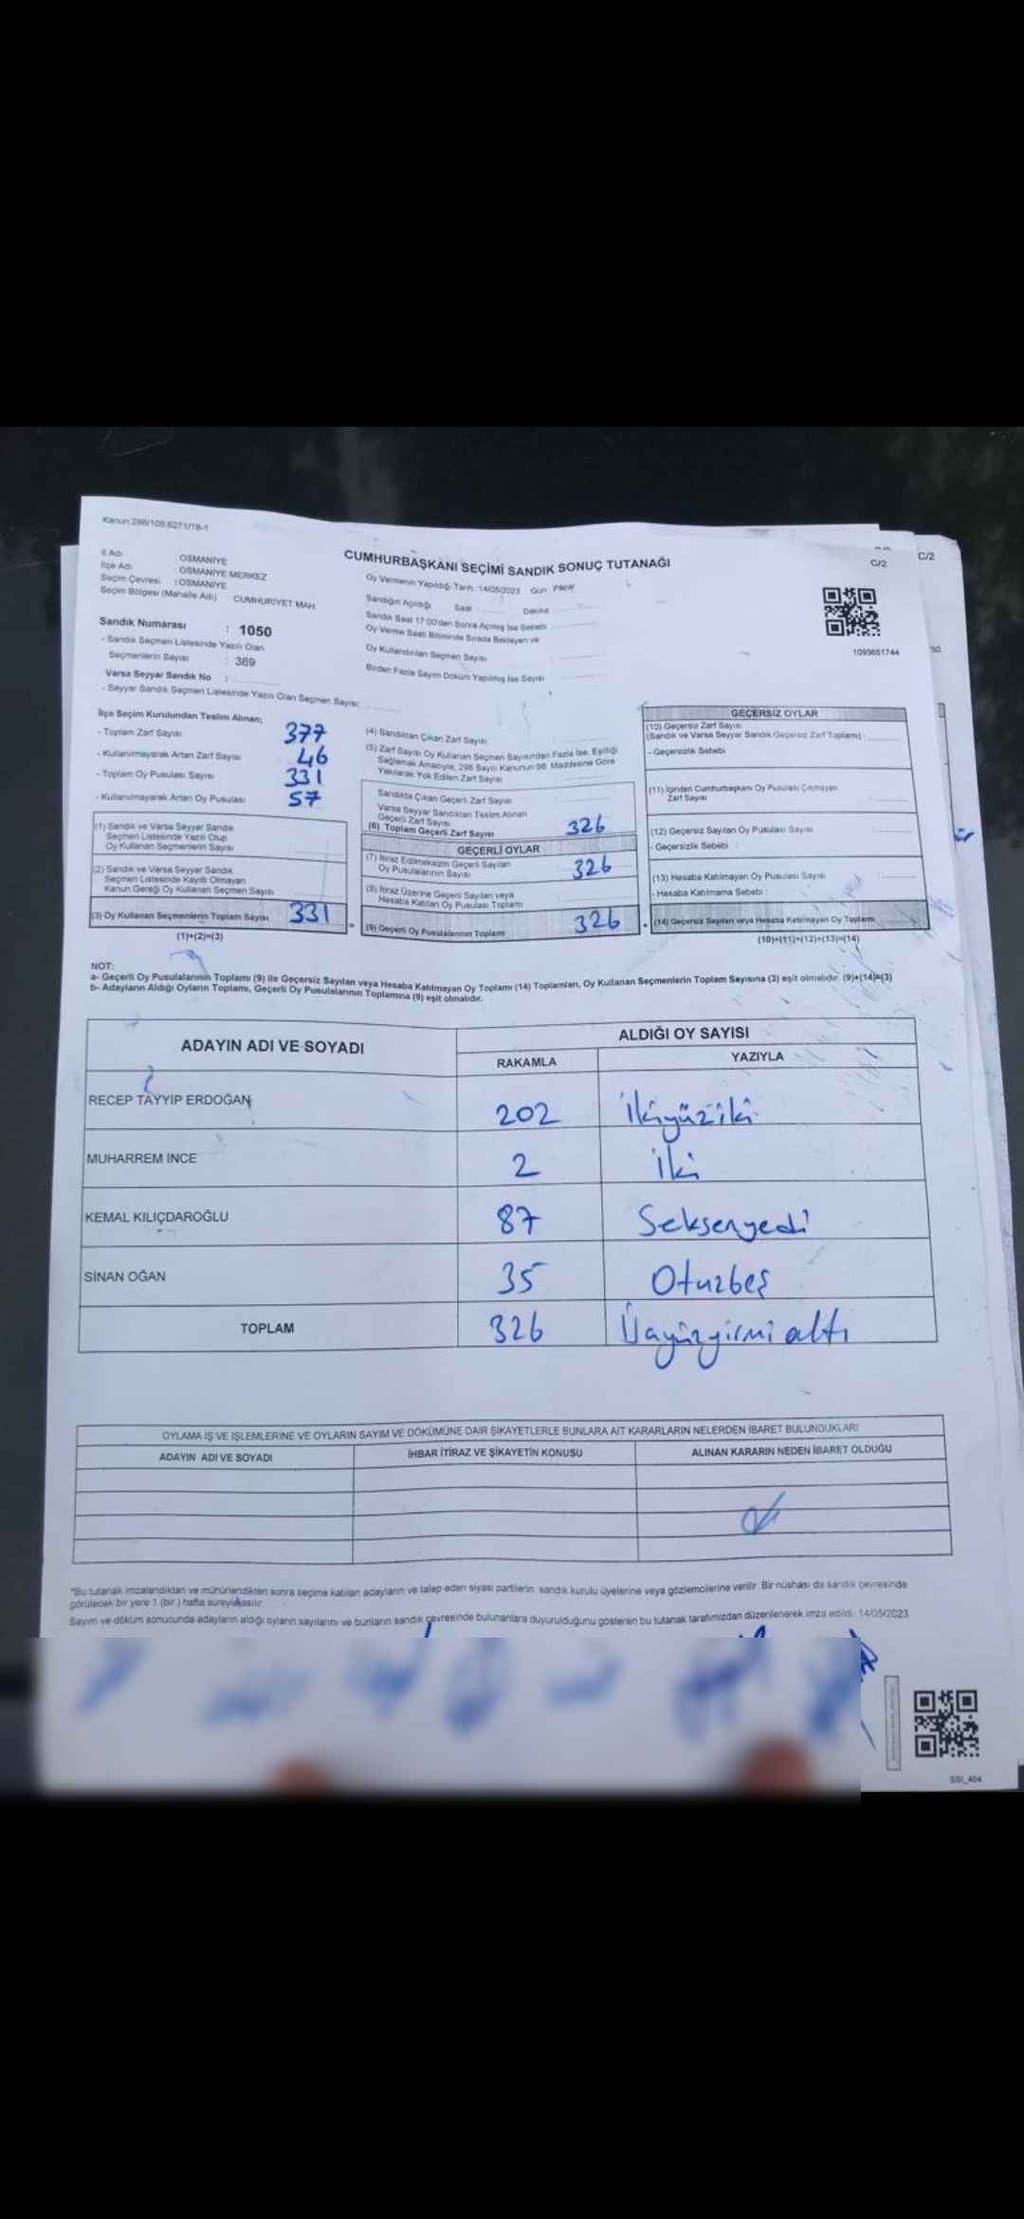 Kanun:298/105.6271/18-1
C/2
C/2
CUMHURBAŞKANI SEÇİMİ SANDIK SONUÇ TUTANAĞI
İl Adı : OSMANİYE
İlçe Adı : OSMANİYE MERKEZ
Seçim Çevresi : OSMANİYE
Seçim Bölgesi (Mahalle Adı) CUMHURİYET MAH
Oy Vermenin Yapıldığı Tarih :14/05/2023 Gün Pazar
Sandığın Açıldığı Saat Dakika
Sandık Saat 17.00'den Sonra Açılmış İse Sebebi
Oy Verme Saati Bitiminde Sırada Bekleyen ve
Oy Kullandırılan Seçmen Sayısı
Birden Fazla Sayım Döküm Yapılmış İse Sayısı
1093651744
50
Sandık Numarası : 1050
- Sandık Seçmen Listesinde Yazılı Olan
Seçmenlerin Sayısı : 369
Varsa Seyyar Sandık No :
- Seyyar Sandık Seçmen Listesinde Yazılı Olan Seçmen Sayısı:
İlçe Seçim Kurulundan Teslim Alınan;
- Toplam Zarf Sayısı 377
- Kullanılmayarak Artan Zarf Sayısı 46
- Toplam Oy Pusulası Sayısı 331
- Kullanılmayarak Artan Oy Pusulası 57
(1) Sandık ve Varsa Seyyar Sandık
Seçmen Listesinde Yazılı Olup
Oy Kullanan Seçmenlerin Sayısı
(2) Sandık ve Varsa Seyyar Sandık
Seçmen Listesinde Kayıtlı Olmayan
Kanun Gereği Oy Kullanan Seçmen Sayısı
(3) Oy Kullanan Seçmenlerin Toplam Sayısı 331
(1)+(2)=(3)
(4) Sandıktan Çıkan Zarf Sayısı
(5) Zarf Sayısı Oy Kullanan Seçmen Sayısından Fazla İse, Eşitliği
Sağlamak Amacıyla, 298 Sayılı Kanunun 98. Maddesine Göre
Yakılarak Yok Edilen Zarf Sayısı
Sandıkta Çıkan Geçerli Zarf Sayısı
Varsa Seyyar Sandıktan Teslim Alınan
Geçerli Zarf Sayısı
(6) Toplam Geçerli Zarf Sayısı 326
GEÇERLİ OYLAR
(7) İtiraz Edilmeksizin Geçerli Sayılan
Oy Pusulalarının Sayısı 326
(8) İtiraz Üzerine Geçerli Sayılan veya
Hesaba Katılan Oy Pusulası Toplamı
(9) Geçerli Oy Pusulalarının Toplamı 326
GEÇERSİZ OYLAR
(10) Geçersiz Zarf Sayısı
(Sandık ve Varsa Seyyar Sandık Geçersiz Zarf Toplamı)
- Geçersizlik Sebebi
(11) İçinden Cumhurbaşkanı Oy Pusulası Çıkmayan
Zarf Sayısı
(12) Geçersiz Sayılan Oy Pusulası Sayısı
- Geçersizlik Sebebi :
(13) Hesaba Katılmayan Oy Pusulası Sayısı
- Hesaba Katılmama Sebebi :
(14) Geçersiz Sayılan veya Hesaba Katılmayan Oy Toplamı
(10)+(11)+(12)+(13)=(14)
NOT:
a- Geçerli Oy Pusulalarının Toplamı (9) ile Geçersiz Sayılan veya Hesaba Katılmayan Oy Toplamı (14) Toplamları, Oy Kullanan Seçmenlerin Toplam Sayısına (3) eşit olmalıdır. (9)+(14)=(3)
b- Adayların Aldığı Oyların Toplamı, Geçerli Oy Pusulalarının Toplamına (9) eşit olmalıdır.
ADAYIN ADI VE SOYADI
ALDIĞI OY SAYISI
RAKAMLA YAZIYLA
RECEP TAYYİP ERDOĞAN 202 İkiyüziki
MUHARREM İNCE 2 İki
KEMAL KILIÇDAROĞLU 87 Seksenyedi
SİNAN OĞAN 35 Otuzbeş
TOPLAM 326 Üçyüzyirmi altı
OYLAMA İŞ VE İŞLEMLERİNE VE OYLARIN SAYIM VE DÖKÜMÜNE DAİR ŞİKAYETLERLE BUNLARA AİT KARARLARIN NELERDEN İBARET BULUNDUKLARI
ADAYIN ADI VE SOYADI İHBAR İTİRAZ VE ŞİKAYETİN KONUSU ALINAN KARARIN NEDEN İBARET OLDUĞU
*Bu tutanak imzalandıktan ve mühürlendikten sonra seçime katılan adayların ve talep eden siyasi partilerin sandık kurulu üyelerine veya gözlemcilerine verilir. Bir nüshası da sandık çevresinde
görülecek bir yere 1 (bir ) hafta süreyle asılır.
Sayım ve döküm sonucunda adayların aldığı oyların sayılarını ve bunların sandık çevresinde bulunanlara duyurulduğunu gösteren bu tutanak tarafımızdan düzenlenerek imza edildi. 14/05/2023
SSI_404